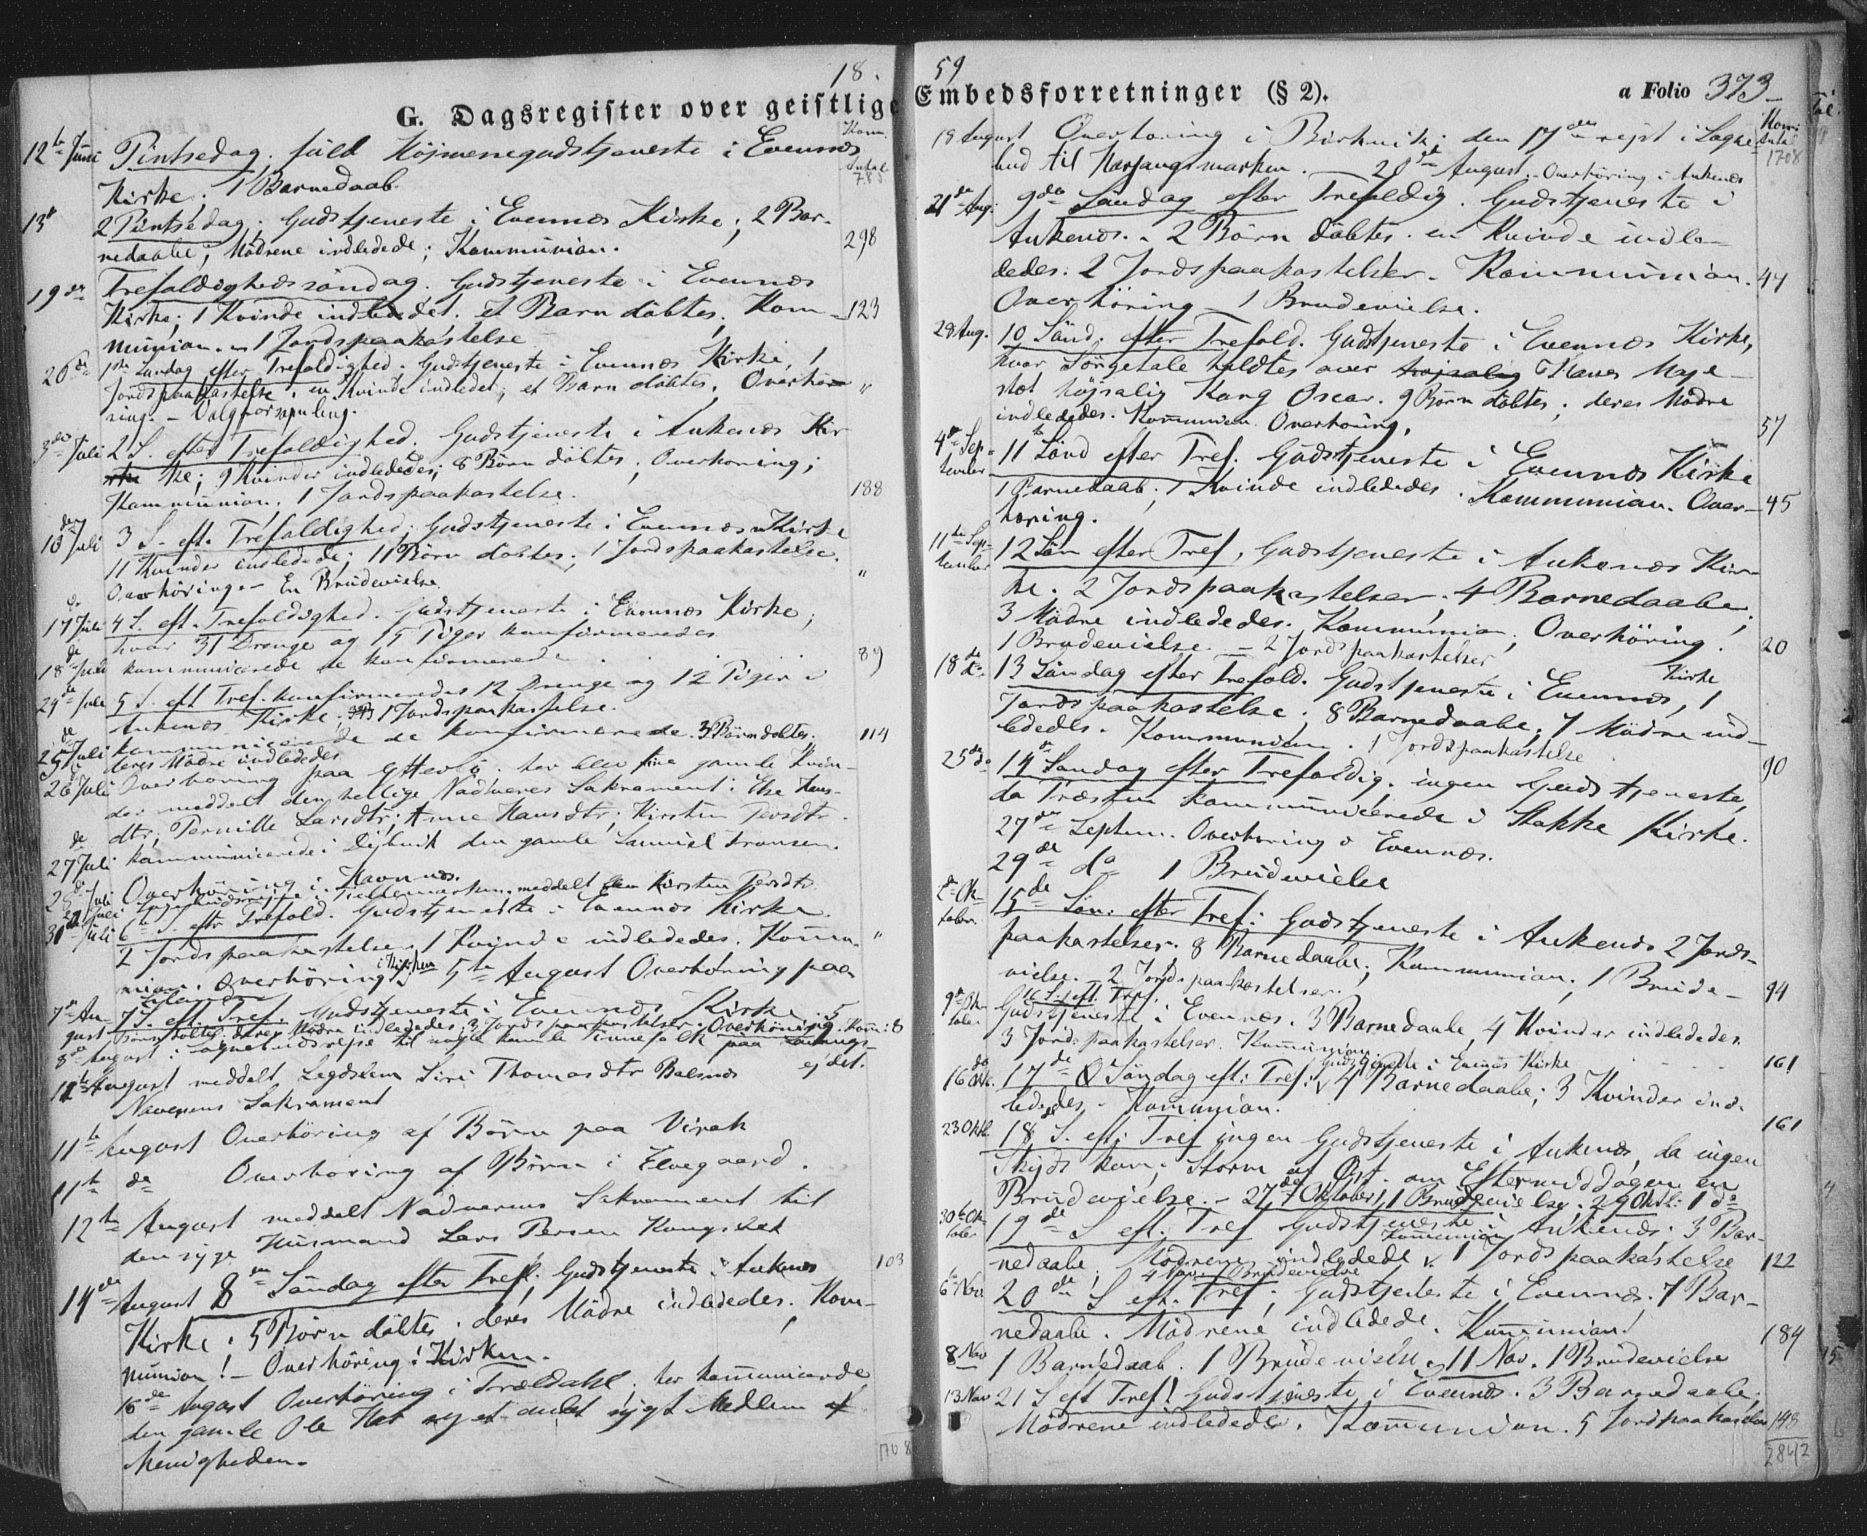 18. 59
G. Dagsregister over geistlige Embedsforretninger (§ 2).
a Folio 373
Kom. Antal
785
12te Juni Pintsedag. fuld Højmessegudstjeneste i Evennes
Kirke; 1 Barnedaab.
13de 2 Pintsedag. Gudstjeneste i Evennes Kirke; 2 Bar-
nedaabe, Mødrene indledede; Kommunion. 298
19de Trefoldighedssøndag. Gudstjeneste i Evennes
Kirke; 1 Kvinde indledet. et Barn døbtes, Kom- 123
munion. 1 Jordspaakastelse
26de 1ste Søndag efter Trefoldighed. Gudstjeneste i Evennes Kirke, 1
Jordspaakastelse, en Kvinde indledet, et Barn døbtes, Overhø- "
ring. - Valgforsamling.
3die Juli 2 S. efter Trefoldighed. Gudstjeneste i Ankenes Kir
ke; 9 Kvinder indlededes; 8 Børn døbtes, Overhøring;
Kommunion, 1 Jordspaakastelse. 188
10de Juli 3 S. eft. Trefoldighed. Gudstjeneste i Evennes Kirke
11 Kvinder indledede; 11 Børn døbtes; 1 Jordspaakastelse.
Overhøring - En Brudevielse "
17de Juli 4 S. eft. Trefoldighed. Gudstjeneste i Evennes Kirke,
hvor 31 Drenge og 15 Piger konfirmeredes
18de Juli kommunicerede de konfirmerede . . . . 89
24de Juli 5 S. eft Tref. konfirmeredes 12 Drenge og 12 Piger i
Ankenes Kirke. 1 Jordspaakastelse.
25de Juli kommunicerede de konfirmerede. 3 Børn døbtes. 114
deres Mødre indlededes
26de Juli Overhøring paa, her blev fire gamle Kvin-
der meddelt den hellige Nadveres Sakrament: Else Hans-
dtr; Pernille Larsdtr; Anne Hansdtr; Kirsten Persdtr.
27de Juli kommunicerede i den gamle Samuel Fransen.
Overhøring i Havnnes.
meddelt Kirsten Persdtr.
31te Juli 6te S. eftr Trefold. Gudstjeneste i Evennes Kirke.
2 Jordspaakastelser, 1 Kvinde indlededes. Kommu- "
nion. Overhøring i Kirken 5te August Overhøring paa
7de Au- 7 S. eft Tref. Gudstjeneste i Evennes Kirke 5
gust Børn døbtes, deres Mødre indlededes, 3 Jordspaakastelser. Overhøring. Kom: 8
8de August: Sognebudsreise til nogle gamle Finnefolk paa
11te August meddelt Lægdslem Siri Thomasdtr Balsnes
Naverens Sakrament
11te August Overhøring af Børn paa Virak
11te do Overhøring af Børn i Elvegaard.
12te August meddelt Nadverens Sakrament til
den syge Husmand Lars Persen Kongsbak
14de August 8de Søndag efter Tref. Gudstjeneste i Ankenes 103
Kirke. 5 Børn døbtes, deres Mødre indlededes. Kom-
munion! - Overhøring i Kirken.
16de August Overhøring i Trældahl. her kommunicerede
den gamle Ole og et andet sygt Medlem af
Menigheden.
1708
Kom: Antal
1708
18 August Overhøring i Birkvik; den 17de rejst i Sogne-
bud til Herjangsmarken. 20de August. Overhøring i Ankenes
21de Aug. 9de Søndag efter Trefoldig. Gudstjeneste i
Ankenes. 2 Børn døbtes. en Kvinde indle-
dedes. 2 Jordspaakastelser. Kommunion. 47
Overhøring - 1 Brudevielse.
28 Aug. 10 Sønd. efter Trefold. Gudstjeneste i Evennes Kirke,
hvor Sørgetale holdtes over Hans Maje-
stæt højsalig Kong Oscar. 9 Børn døbtes; deres Mødre
indlededes. Kommunion Overhøring. 57
4de Sep- tember 11te Sønd efter Tref. Gudstjeneste i Evennes Kirke
1 Barnedaab; 1 Kvinde indlededes. Kommunion. Over- 45
høring.
11te Sep- tember 12 Søn efter Tref, Gudstjeneste i Ankenes Kir-
ke. 2 Jordspaakastelser. 4 Barnedaabe,
3 Mødre indlededes. Kommunion, Overhøring.
1 Brudevielse. - 2 Jordspaakastelser 20
18de do 13 Søndag efter Trefold. Gudstjeneste i Evennes Kirke, 1
Jordspaakastelse. 8 Barnedaabe; 7 Mødre ind-
lededes. Kommunion. 1 Jordspaakastelse
25de do 14de Søndag efter Trefoldig. ingen Gudstjeneste, 90
da Præsten kommunicerede i Stokke Kirke.
27de Septem. Overhøring i Evennes.
29de do 1 Brudevielse
2de Ok- tober. 15de Søn. efter Tref: Gudstjeneste i Ankenes 2 Jords-
paakastelser. 8 Barnedaabe; Kommunion. 1 Brude-
vielse. 2 Jordspaakastelser. 94
9de Ok- tober 16 S. eft. Tref.
Gudstjeneste i Evennes. 3 Barnedaabe, 4 Kvinder indlededes.
3 Jordspaakastelser. Kommunion 161
16de Okt. 17de Søndag eft: Tref: Gudstjeneste i Evennes Kirke 4 Barnedaabe; 3 Kvinder ind-
lededes. Kommunion.
23 Okt. 18de S. eft: Tref ingen Gudstjeneste i Ankenes, da ingen 161
Skyds kom; Storm af Øst. om Eftermiddagen en
Brudevielse. - 27de Oktober, 1 Brudevielse. 29 Okt: 1 do
30te Ok- tober 19de S eft. Tref Gudstjeneste i Ankenes. 3 Bar-
nedaabe, Mødrene indledede Kommunion 1 Jordspaakastelse 122
6te Nov 20de S eft. Tref; Gudstjeneste i Evennes. 7 Bar-
nedaabe. Mødrene indledede. Kommunion! 184
8 Nov 1 Barnedaab. 1 Brudevielse 11 Nov. 1 Brudevielse
13 Nov 21 S eft Tref! Gudstjeneste i Evennes. 3 Barnedaabe.
Mødrene indledede. Kommunion. 5 Jordpaakastelser 148
2842